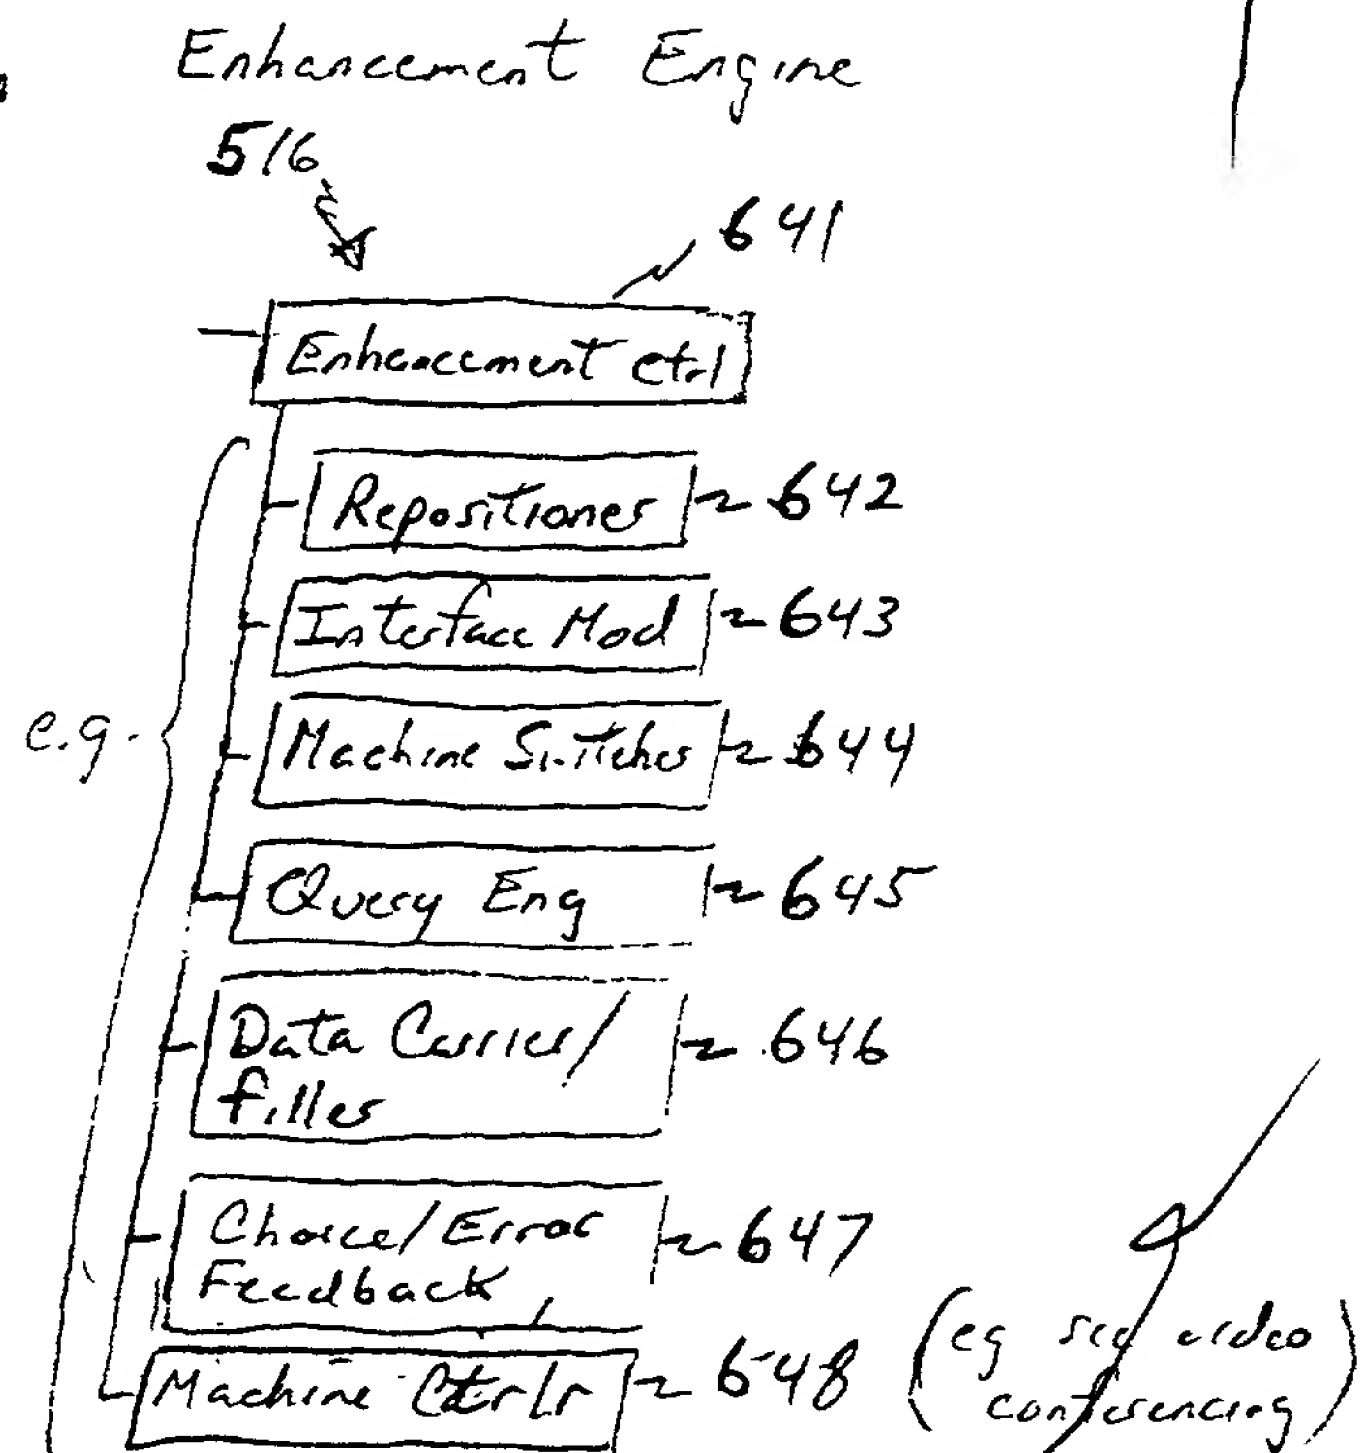 Enhancement Engine
516
641
Enhancement Ctrl
Repositioner 642
Interface Mod 643
Machine Switcher 644
e.g.
Query Eng 645
Data Carrier/ 646
filler
Choice/Error 647
Feedback
Machine Ctrlr 648
(eg see video
conferencing)